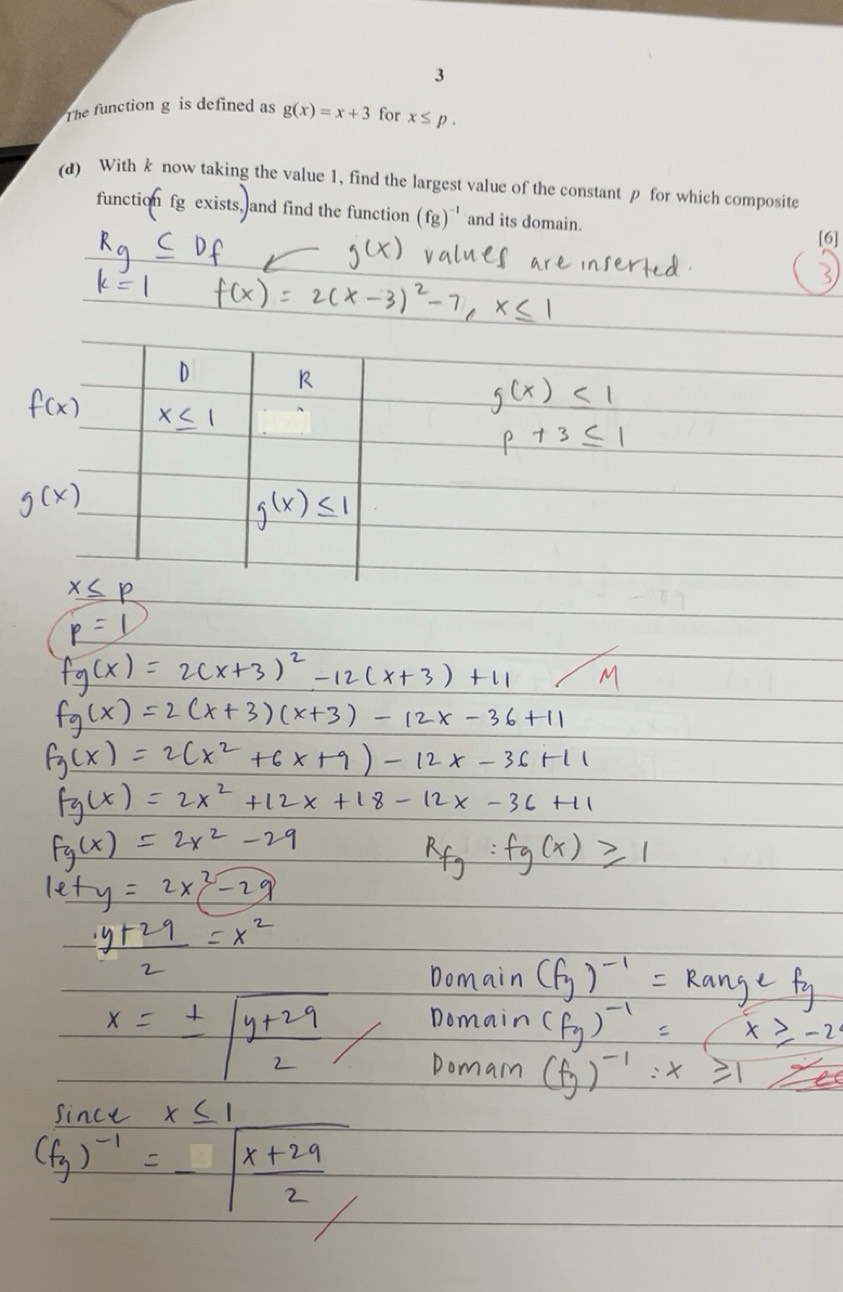 3
The function g is defined as g(x) = x + 3 for x ≤ p.
(d) With k now taking the value 1, find the largest value of the constant p for which composite
function fg exists, and find the function (fg)⁻¹ and its domain.
[6]
Rg ⊆ Df ← g(x) values are inserted.
3
k = 1 f(x) = 2(x - 3)² - 7, x ≤ 1
D R
g(x) ≤ 1
f(x) x ≤ 1
p + 3 ≤ 1
g(x) g(x) ≤ 1
x ≤ p
p = 1
fg(x) = 2(x+3)² - 12(x+3) + 11 M
fg(x) = 2(x+3)(x+3) - 12x - 36 + 11
fg(x) = 2(x² + 6x + 9) - 12x - 36 + 11
fg(x) = 2x² + 12x + 18 - 12x - 36 + 11
fg(x) = 2x² - 29 Rfg : fg(x) ≥ 1
let y = 2x² - 29
y+29 / 2 = x²
Domain (fg)⁻¹ = Range fg
x = ± √(y+29 / 2) Domain (fg)⁻¹ = x ≥ -2
Domain (fg)⁻¹ : x ≥ 1
since x ≤ 1
(fg)⁻¹ = - √(x+29 / 2)